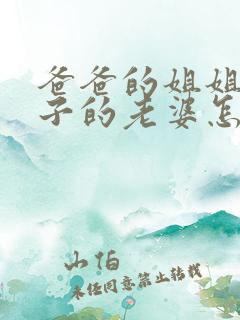 爸爸的姐姐
子的老婆怎
山怕
未经同意禁止转载